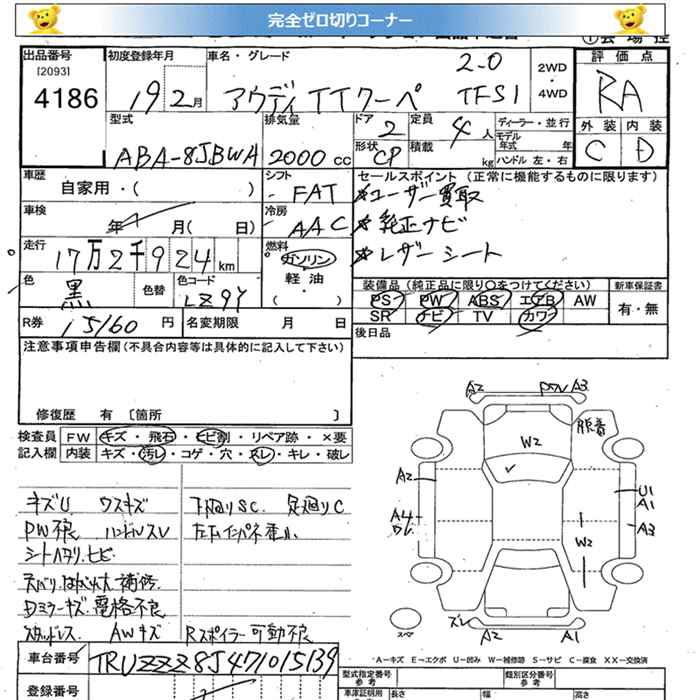 完全ゼロ切りコーナー
出品番号
[2093]
4186
初度登録年月
19 2月
車名・グレード
アウディ TTクーペ
2.0
TFSI
2WD
・
4WD
評価点
RA
外装 内装
C D
型式
ABA-8JBWA
排気量
2000 cc
ドア 2
形状 CP
定員 4 人
積載 kg
ディーラー・並行
モデル
年式 年
ハンドル 左・右
車歴
自家用・( )
シフト
FAT
車検
年 月( 日)
冷房
AAC
セールスポイント (正常に機能するものに限ります)
*ユーザー買取
*純正ナビ
*レザーシート
走行
17万2千924km
燃料
ガソリン
軽油
・( )
色
黒
色替
色コード
LZ9Y
装備品 (純正品に限り○をつけてください)
新車保証書
PS PW ABS エアB AW
SR ナビ TV カワ
有・無
R券 15160 円
名変期限 月 日
後日品
注意事項申告欄(不具合内容等は具体的に記入して下さい)
修復歴 有 〔箇所 〕
検査員
記入欄
FW キズ・飛石・ヒビ割・リペア跡・×要
内装 キズ・汚レ・コゲ・穴・スレ・キレ・破レ
キズU ウスキズ
下回りSC 足廻りC
PW不良 ハンドルスレ
シートヘタリ.ヒビ
Dミラーキズ.電格不良
スタッドレス AWキズ
Rスポイラー可動不良
A2
A3
W2
A2
A4
ワレ
U1
A1
A3
W2
スペア
ズレ
A2
A1
A-キズ E-エクボ U-凹み W-補修跡 S-サビ C-腐食 XX-交換済
車台番号
TRUZZZ8J471015139
登録番号
型式指定番号
類別区分番号
車庫証明用
長さ
幅
高さ